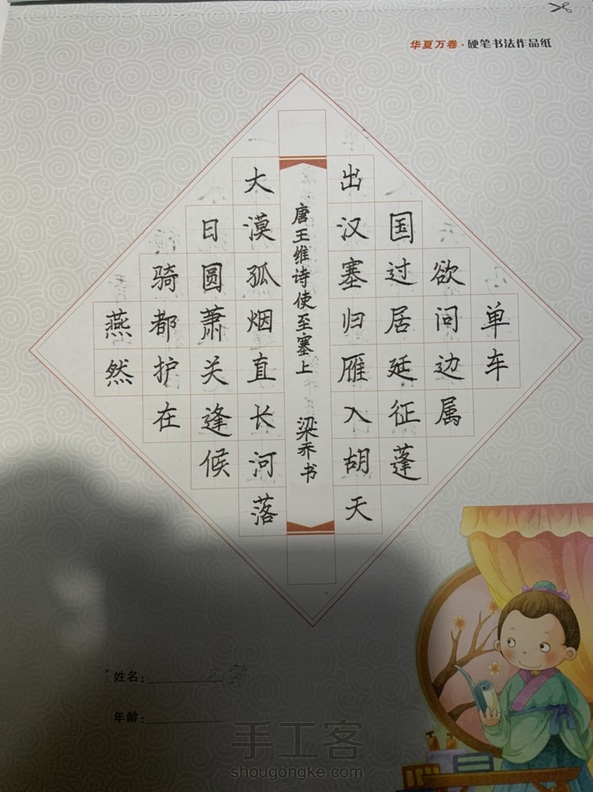 华夏万卷·硬笔书法作品纸
单车
欲问边属
国过居延征蓬
出汉塞归雁入胡天
唐王维诗使至塞上 梁书
大漠孤烟直长河落
日圆萧关逢候
骑都护在
燕然
姓名：
年龄：
手工客
shougongke.com